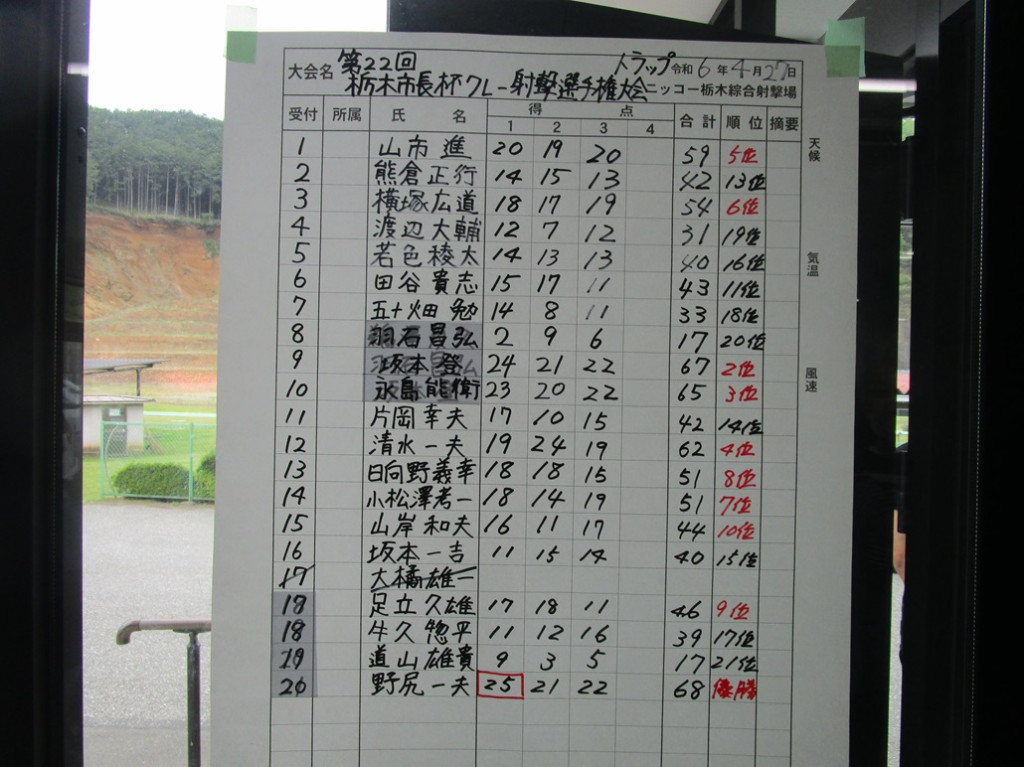 大会名 第22回 トラップ 令和 6 年 4 月 27 日
栃木市長杯クレー射撃選手権大会 ニッコー栃木綜合射撃場
受付 所属 氏 名 得 点 合計 順位 摘要
1 2 3 4
天候
1 山市 進 20 19 20 59 5位
2 熊倉正行 14 15 13 42 13位
3 横塚広道 18 17 19 54 6位
4 渡辺大輔 12 7 12 31 19位
5 若色稜太 14 13 13 40 16位
気温
6 田谷貴志 15 17 11 43 11位
7 五十畑 勉 14 8 11 33 18位
8 羽石昌弘 2 9 6 17 20位
9 坂本 登 24 21 22 67 2位
風速
10 永島能衛 23 20 22 65 3位
11 片岡幸夫 17 10 15 42 14位
12 清水一夫 19 24 19 62 4位
13 日向野義幸 18 18 15 51 8位
14 小松澤孝一 18 14 19 51 7位
15 山岸和夫 16 11 17 44 10位
16 坂本一吉 11 15 14 40 15位
17 大橘雄一
18 足立久雄 17 18 11 46 9位
18 牛久惣平 11 12 16 39 17位
19 道山雄貴 9 3 5 17 21位
20 野尻一夫 25 21 22 68 優勝